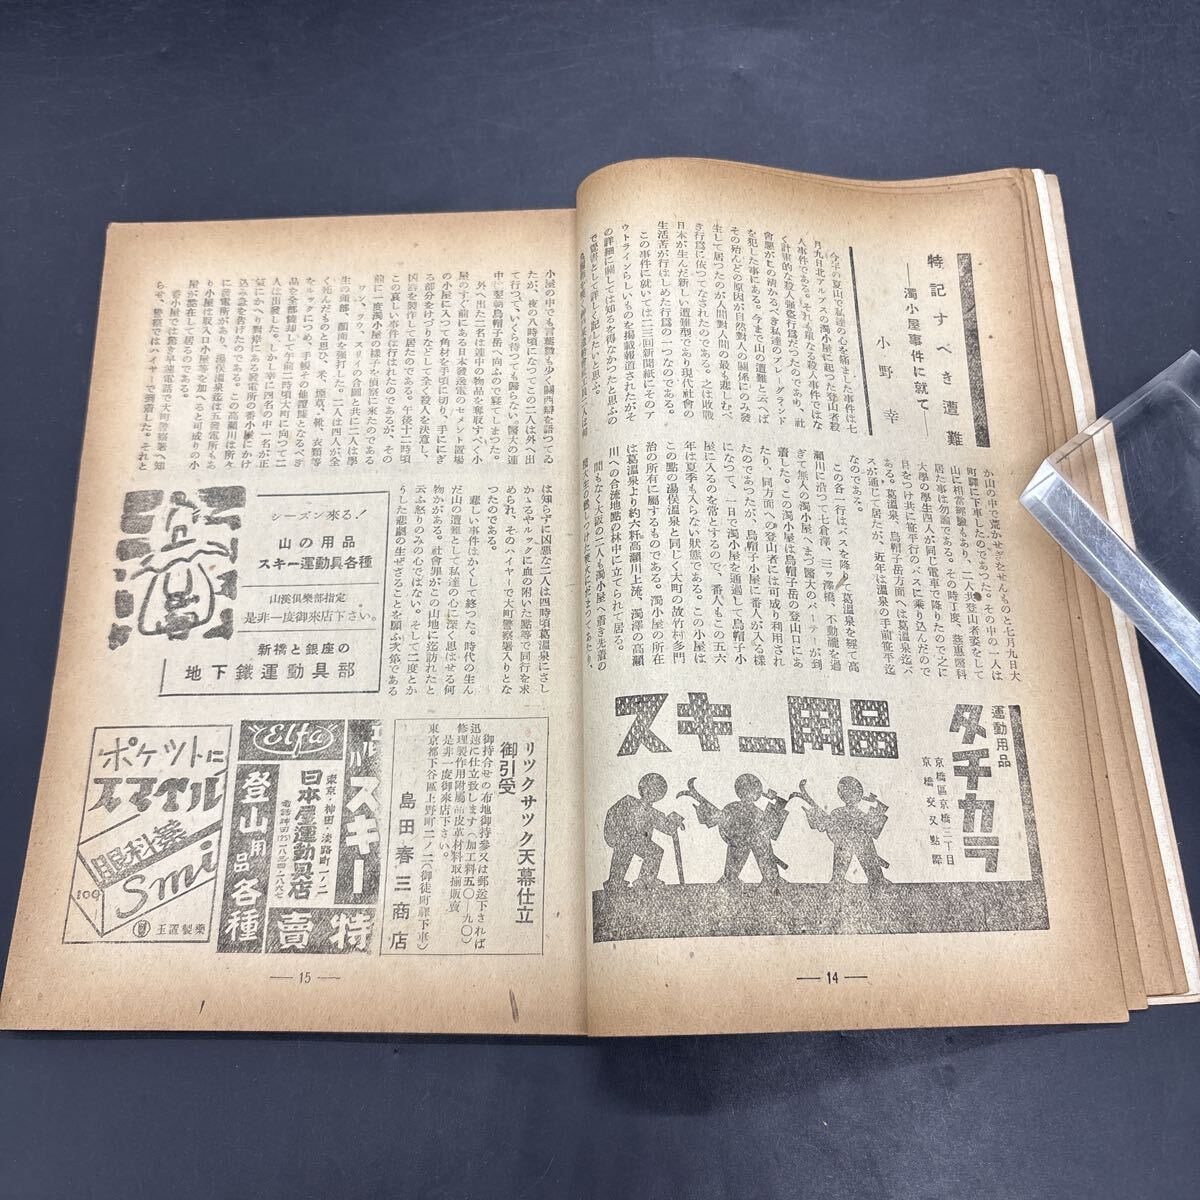 特記すべき遭難
―濁小屋事件に就て―
小野幸
今年の夏山で私達の心を痛ました事件は七
月九日北アルプスの濁小屋に起つた登山者殺
人事件である。それも單なる殺人事件ではな
く計畫的な殺人強盗行爲だつたのであり、社
會惡がこの清かるべき私達のプレーグランド
を犯した事にある。今まで山の遭難と云へば
その殆んどの原因が自然對人の關係にのみ發
生して居つたのが人間對人間の最も悲しむべ
き行爲に依つてなされたのである。之は敗戰
日本が生んだ新しい遭難型であり現代社會の
生活苦が行はしめた行爲の一つなのである。
この事件に就いては二三回新聞紙にそのア
ウトラインらしいものを掲載報道されたがそ
の詳細に關しては知るを得なかつたと思ふの
で覺書として詳しく記したいと思ふ。
か山の中で荒かせぎをせんものと七月九日大
町驛に下車したのであつた。その中の一人は
山に相當經驗もあり、二人共登山者姿をして
居た事は勿論である。その時丁度、慈惠醫科
大學の學生四人が同じ電車で降りたので之に
目をつけ共に笹平行のバスに乘り込んだので
ある。葛溫泉、烏帽子岳方面へは葛溫泉迄バ
スが通じて居たが、近年は溫泉の手前笹平迄
なのである。
この各一行はバスを降りて葛溫泉を經て高
瀬川に沿つて七倉澤、三ッ澤橋、不動瀧を過
ぎて無人の濁小屋へまづ醫大のパーテーが到
着した。この濁小屋は烏帽子岳の登山口にあ
たり、同方面への登山者には可成り利用され
たのであつたが、烏帽子小屋に番人が入る樣
になつて、一日で濁小屋を通過して烏帽子小
屋に入るのを常とするので、番人もこの五六
年は夏季も入らない狀態である。この小屋は
この點の湯俣溫泉と同じく大町の故竹村多門
治の所有に屬するものである。濁小屋の所在
は葛溫泉より約六粁高瀬川上流、濁澤の高瀬
川への合流地點の林中に立てられて居る。
間もなく大阪の二人も濁小屋へ着き先着の
運動用品
タチカラ
京橋區京橋三丁目
京橋交叉點際
スキー用品
―14―
小屋の中でも言葉數も少く關西辯を語つてゐ
たが、夜の八時頃になつてこの二人は外へ出
て行つて、いくら待つても歸らない。醫大の連
中は翌朝烏帽子岳へ向ふので寢てしまつた。
外へ出た二名は連中の物品を奪取すべく小
屋のすぐ前にある日本發送電のセメント置場
の小屋に入つて角材を手頃に切り、手ににぎ
る部分をけづりなどして全く殺人を決意し、
凶器を製作して居たのである。午後十二時頃
この哀しい事件は行はれたのであるが、その
前に一度濁小屋の樣子を偵察に來たのである
ワン、ツウ、スリイの合圖と共に二人は學
生の頭部、顏面を強打した。二人は四人が全
く死んだものと思ひ、米、煙草、靴、衣類等
をルックにつめ、手帳その他證據となるべき
品を全部燒却して午前二時頃大町に向つて二
人は出發した。しかし幸に四名の中一名が正
氣にかへり對岸にある發電所の番小屋にかけ
込み急を告げたのである。この高瀬川は所々
に發電所があり、湯俣溫泉迄は五發電所もあ
り小屋は取入口小屋等を加へると可成りの小
屋が點在して居るのである。
番小屋では驚き早速電話で大町警察署へ知
らせ、警察ではハイヤーで到着した。それと
は知らずに凶惡な二人は四時頃葛溫泉にさし
かゝるやルックに血の附いた點等で同行を求
められ、そのハイヤーで大町警察署入りとな
つたのである。
悲しい事件はかくして終つた。時代の生ん
だ山の遭難として私達の心に深く思はせる何
物かがある。社會罪がこの山地に迄訪れたと
云ふ怒りのみの心ではない。そして二度とか
うした悲劇の生ぜざることを願ふ次第である
シーズン來る！
山の用品
スキー運動具各種
山溪倶樂部指定
是非一度御來店下さい。
新橋と銀座の
地下鐵運動具部
リツクサツク天幕仕立
御引受
御持合せの布地御持參又は郵送下されば
迅速に仕立致します（加工料五〇―九〇）
修理製作用附屬品皮革材料取揃販賣
是非一度御來店下さい。
東京都下谷區上野町二ノ二（御徒町驛下車）
島田春三商店
スキー
特賣
Elfa
東京・神田・淡路町一ノ二
日本屋運動具店
登山用品各種
ポケツトに
スマイル
眼科藥
Smi
玉置製藥
―15―